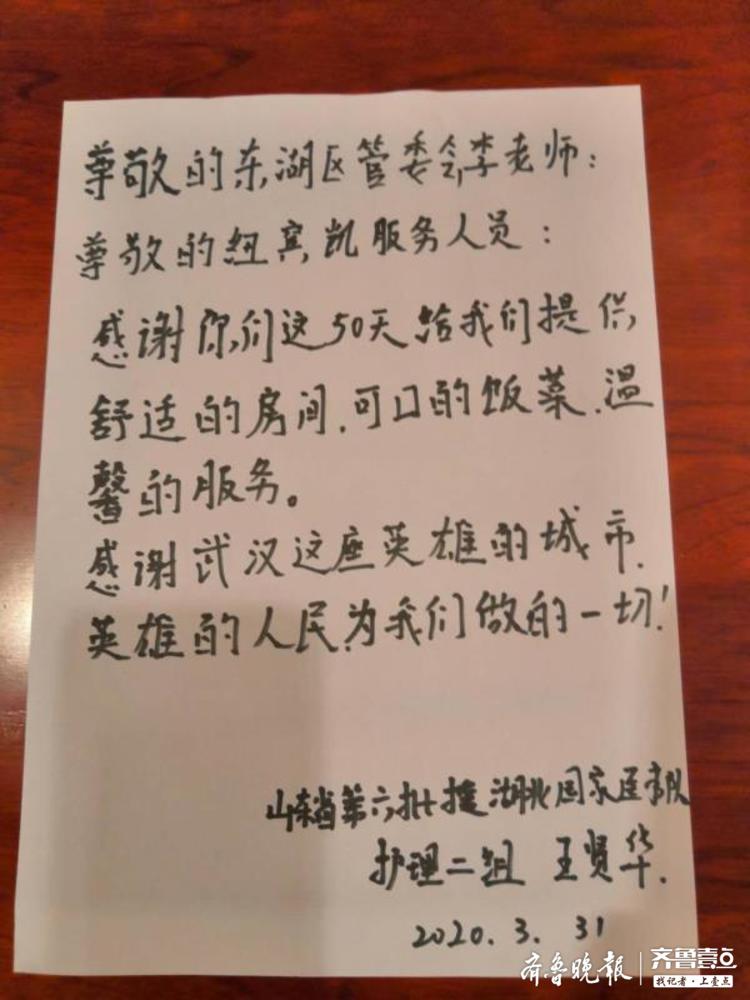 尊敬的东湖区管委会李老师：
尊敬的纽宾凯服务人员：
感谢你们这50天给我们提供
舒适的房间.可口的饭菜.温
馨的服务。
感谢武汉这座英雄的城市.
英雄的人民为我们做的一切！
山东省第六批援湖北国家医疗队
护理二组 王贤华.
2020.3.31
齐鲁晚报
齐鲁壹点
找记者·上壹点